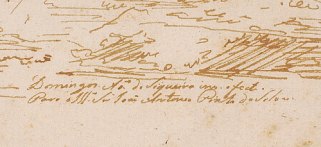 Domingos Ato. de Sequeira inv. e fect.
Para o Illo. Sr. João Antonio Pinto da Silva.